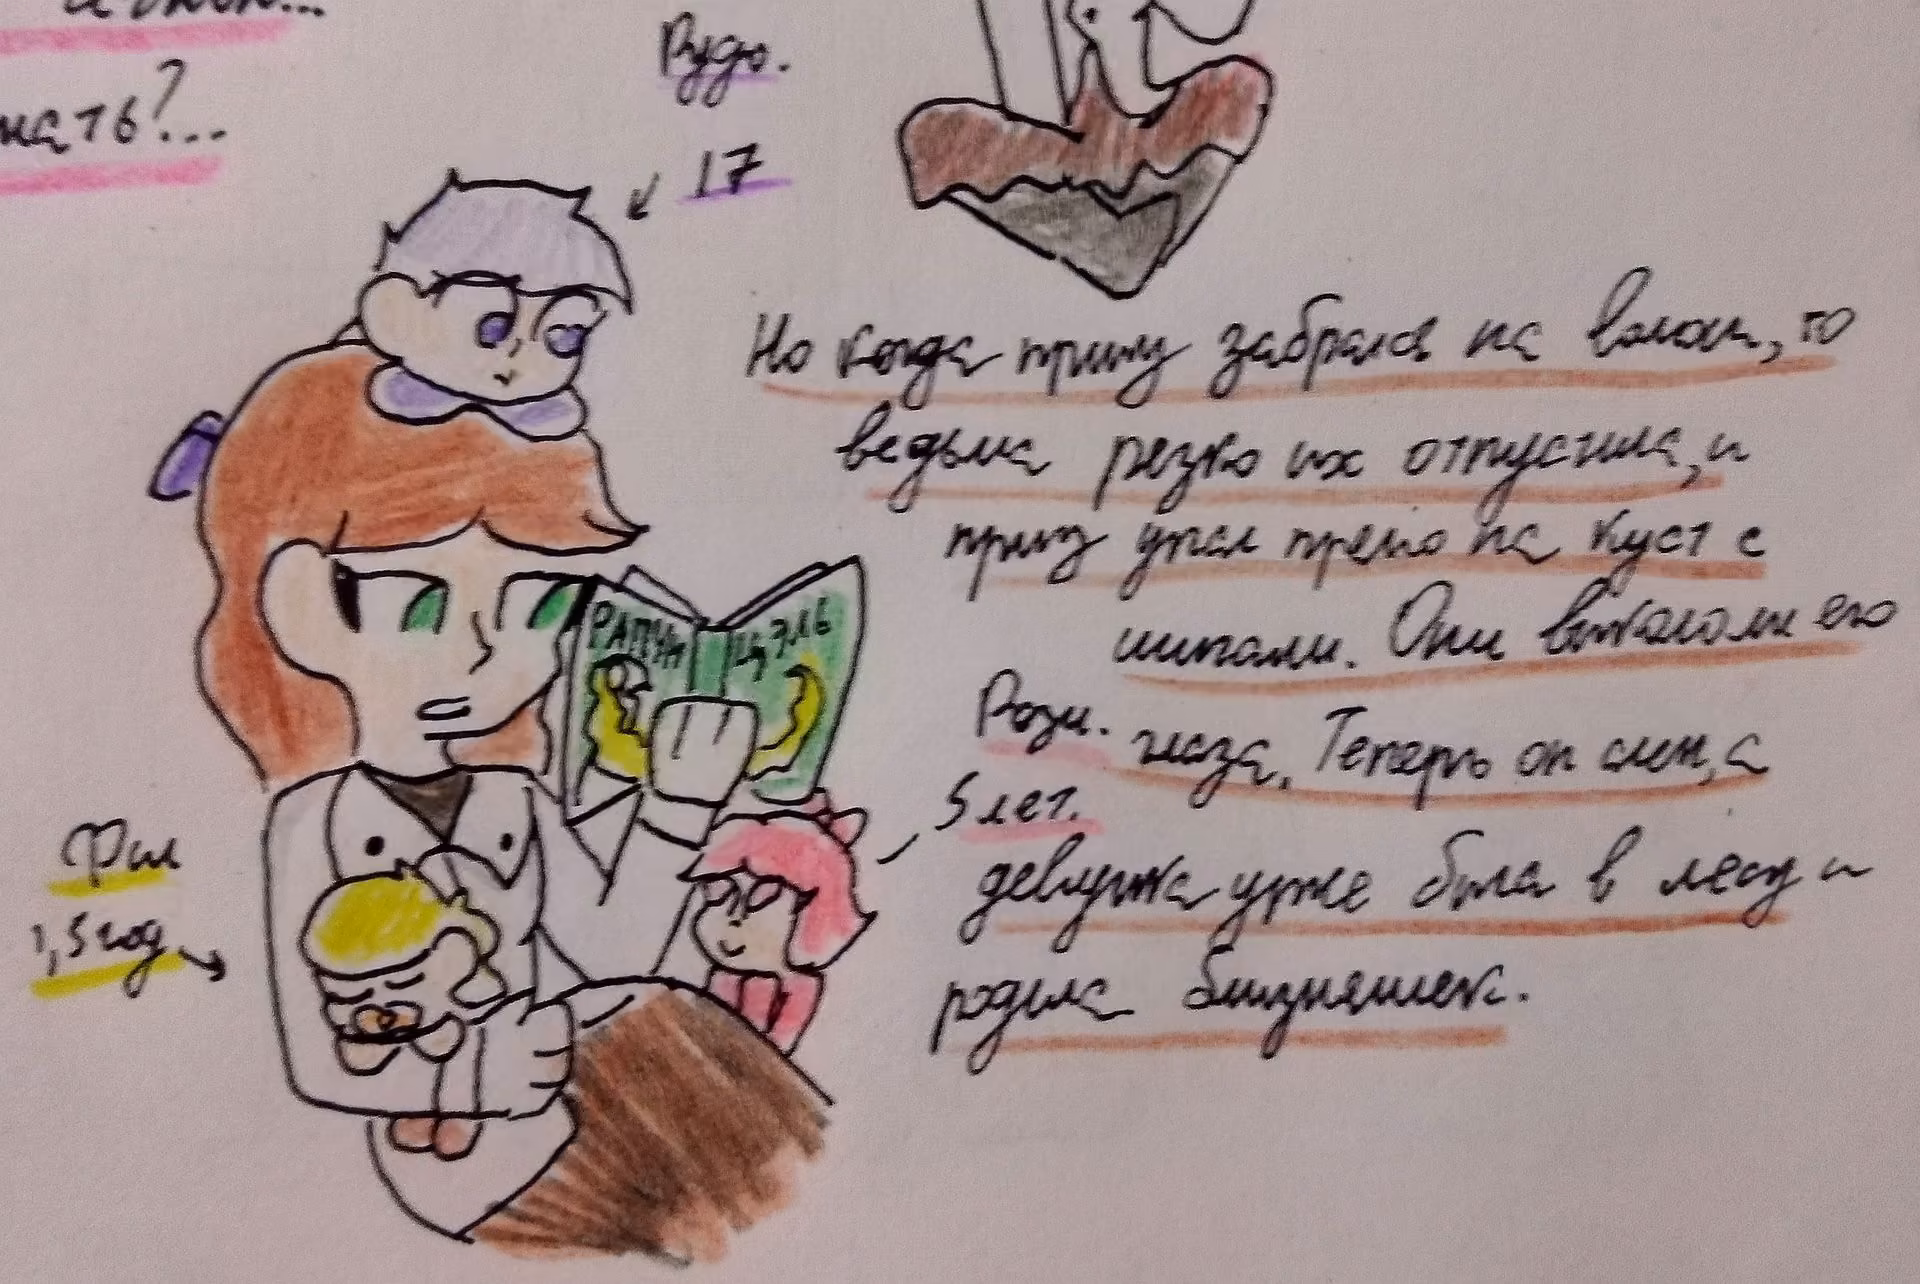 мать?...
Рудо.
17
Но когда принц забрался на волосы, то
ведьма резко их отпустила, и
принц упал прямо на куст с
шипами. Они выкололи его
глаза. Теперь он слеп, а
девушка уже была в лесу и
родила близняшек.
РАПУН
ЦЭЛЬ
Рози.
5 лет.
Фил
1,5 год